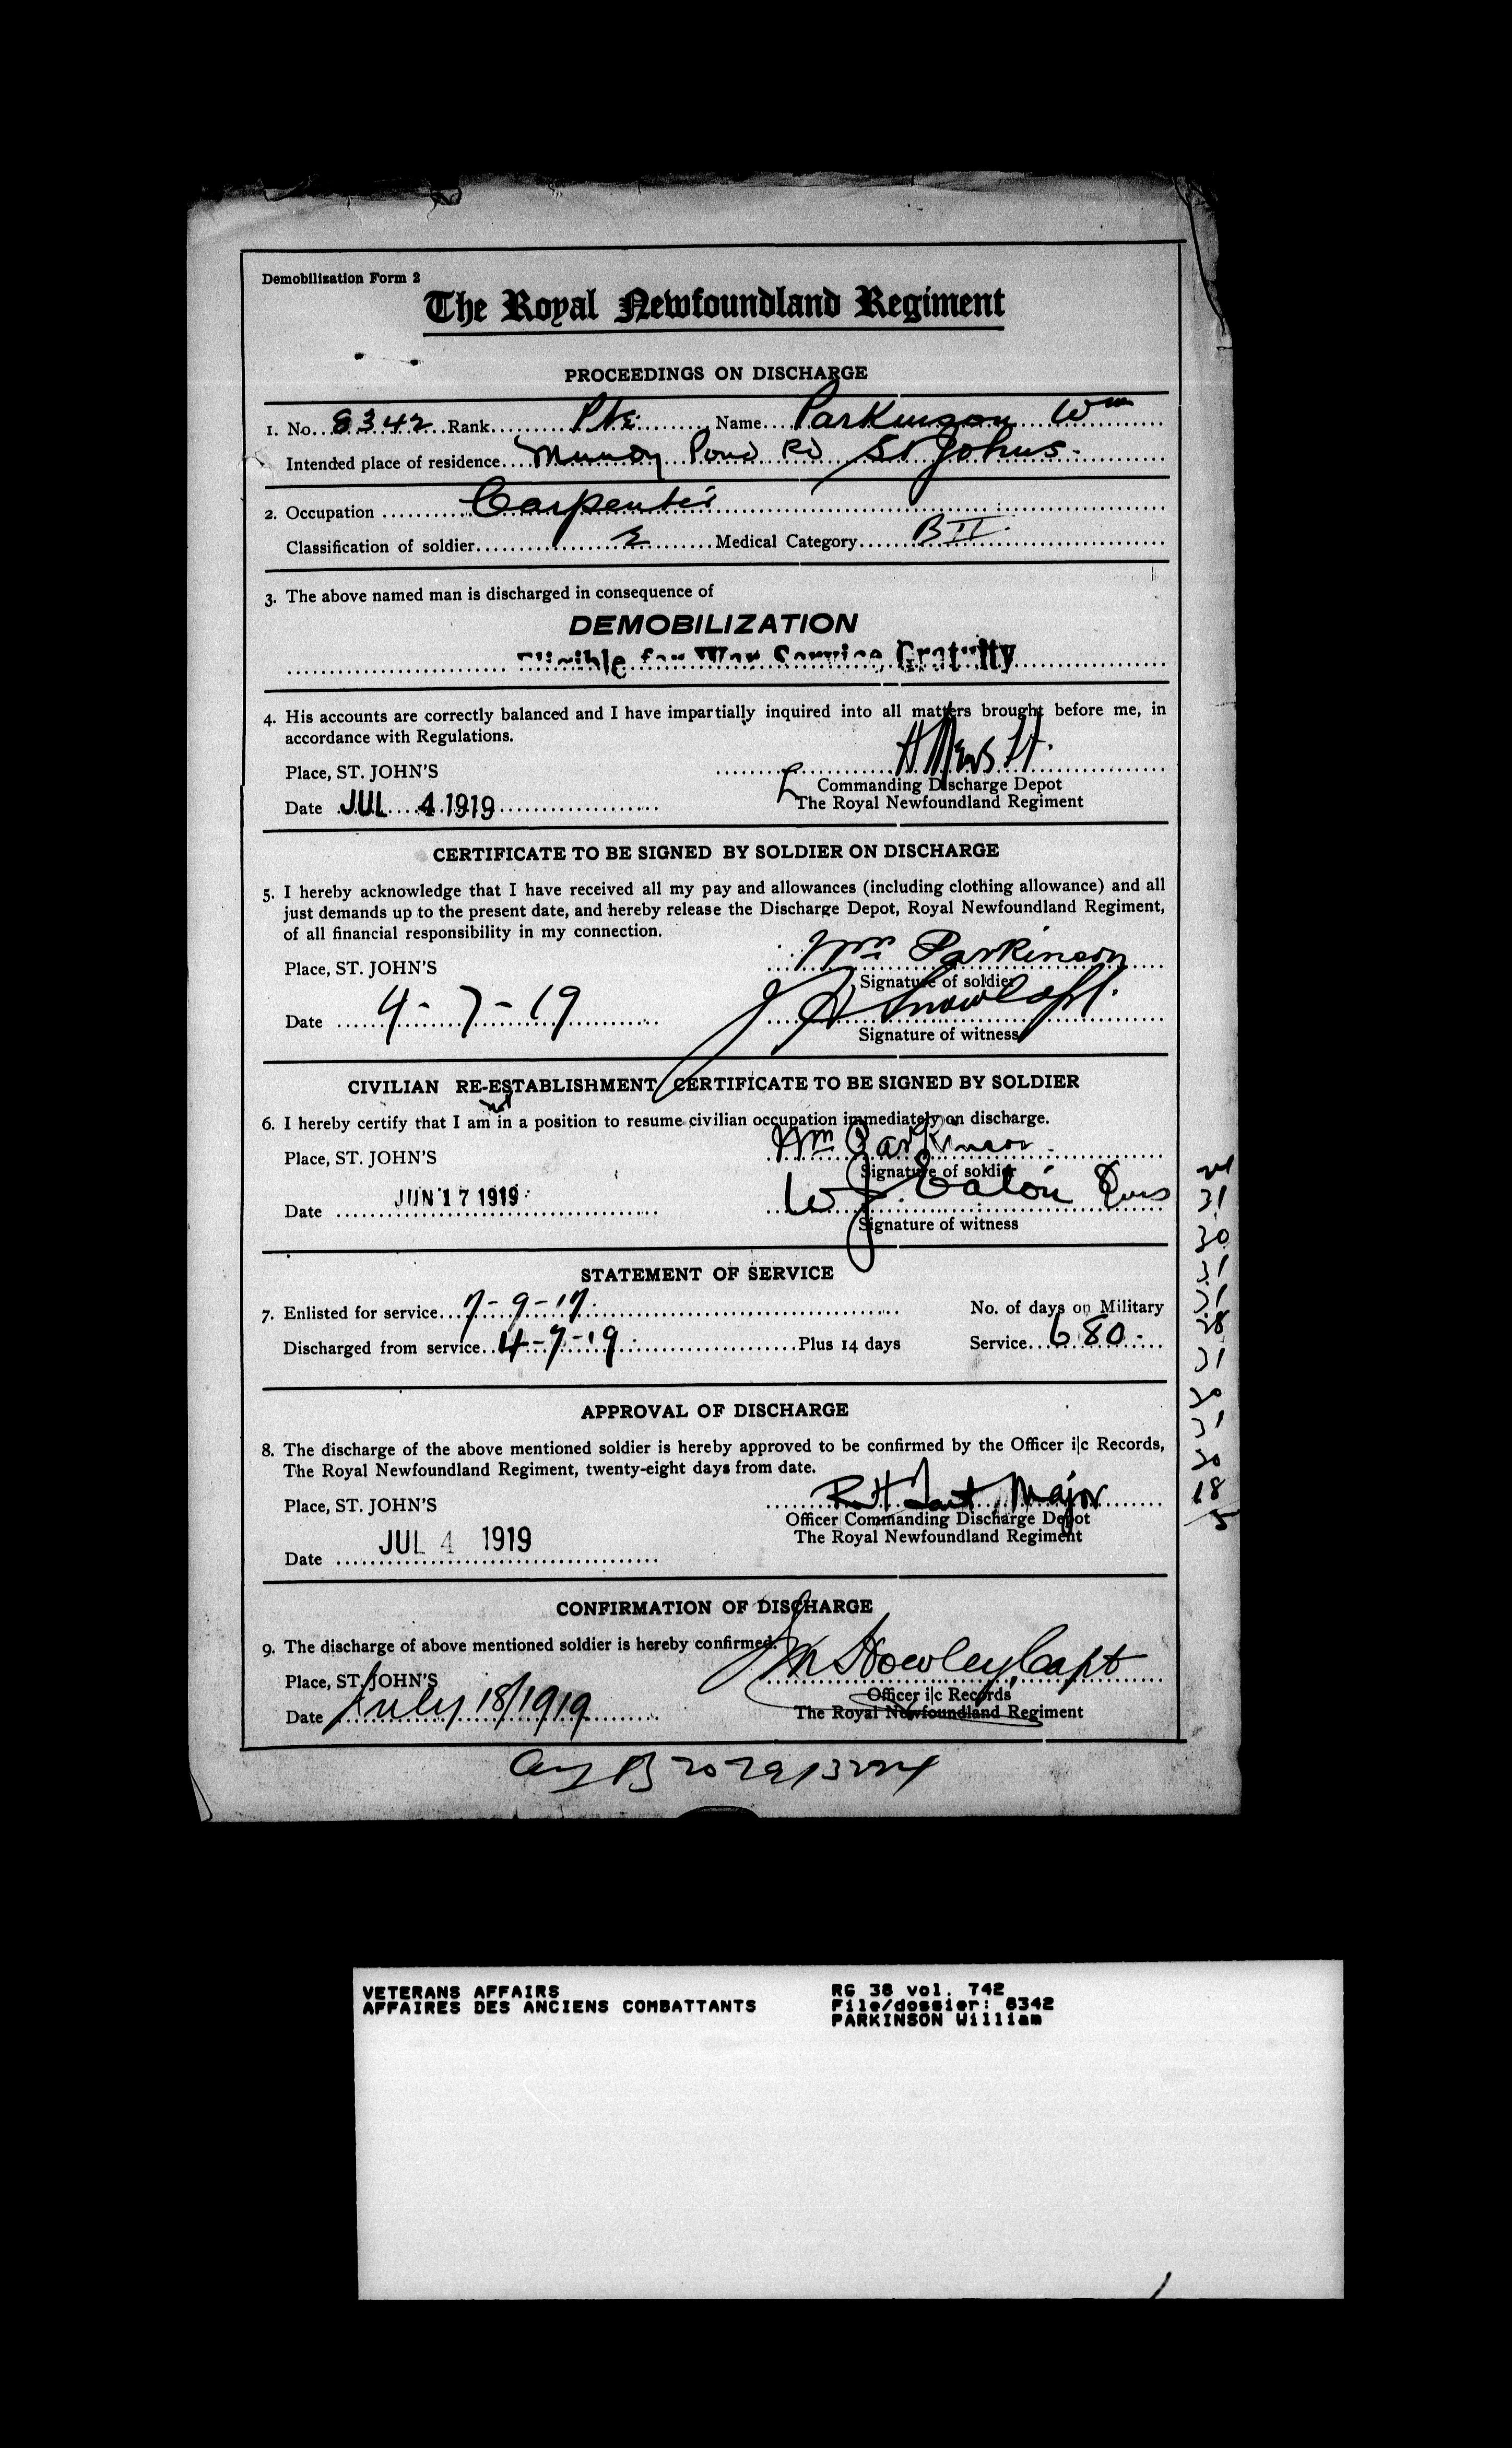 Demobilization Form 2
The Royal Newfoundland Regiment
PROCEEDINGS ON DISCHARGE
1. No. 8342 Rank Pte. Name Parkinson Wm
Intended place of residence Mundy Pond Rd St Johns.
2. Occupation Carpenter
Classification of soldier Medical Category B II.
3. The above named man is discharged in consequence of
DEMOBILIZATION
Eligible for War Service Gratuity
4. His accounts are correctly balanced and I have impartially inquired into all matters brought before me, in
accordance with Regulations.
Place, ST. JOHN'S
Commanding Discharge Depot
Date JUL 4 1919 The Royal Newfoundland Regiment
CERTIFICATE TO BE SIGNED BY SOLDIER ON DISCHARGE
5. I hereby acknowledge that I have received all my pay and allowances (including clothing allowance) and all
just demands up to the present date, and hereby release the Discharge Depot, Royal Newfoundland Regiment,
of all financial responsibility in my connection.
Place, ST. JOHN'S Wm Parkinson
Signature of soldier
Date 4-7-19
Signature of witness
CIVILIAN RE-ESTABLISHMENT CERTIFICATE TO BE SIGNED BY SOLDIER
6. I hereby certify that I am not in a position to resume civilian occupation immediately on discharge.
Place, ST. JOHN'S Wm Parkinson
Signature of soldier
Date JUN 17 1919 W J. Eaton
Signature of witness
STATEMENT OF SERVICE
7. Enlisted for service 7-9-17. No. of days on Military
Discharged from service 4-7-19. Plus 14 days Service 680.
APPROVAL OF DISCHARGE
8. The discharge of the above mentioned soldier is hereby approved to be confirmed by the Officer i|c Records,
The Royal Newfoundland Regiment, twenty-eight days from date.
Place, ST. JOHN'S R H Tait, Major
Officer Commanding Discharge Depot
The Royal Newfoundland Regiment
Date JUL 4 1919
CONFIRMATION OF DISCHARGE
9. The discharge of above mentioned soldier is hereby confirmed.
Place, ST. JOHN'S M Howley, Capt
Officer i|c Records
Date July 18/1919 The Royal Newfoundland Regiment
31
30
31
31
28
31
30
31
30
18
5
VETERANS AFFAIRS RG 38 vol. 742
AFFAIRES DES ANCIENS COMBATTANTS File/dossier: 8342
PARKINSON William